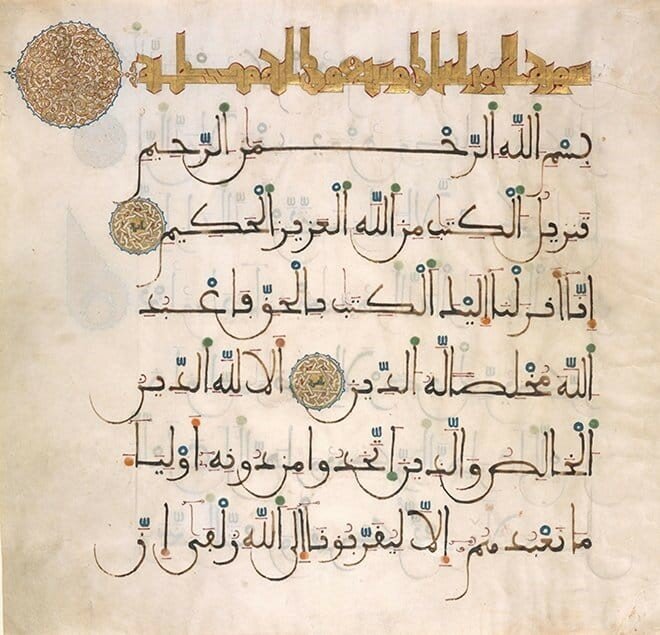 سورة الزمر اثنان وسبعون اية
بِسْمِ اللَّهِ الرَّحْمَنِ الرَّحِيمِ
تنزيل الْكتب مِن اللَّه الْعزيز الْحَكيم
إنَّا أنزلْنا إليك الْكتب بالْحقّ فاعْبد
اللَّه مُخْلصا لَّه الدّين ألا للَّه الدّين
الْخالص والَّذين اتَّخذوا من دونه أوليا
ما نعْبدهم إلَّا ليقرّبونا إلى اللَّه زلْفى إنَّ